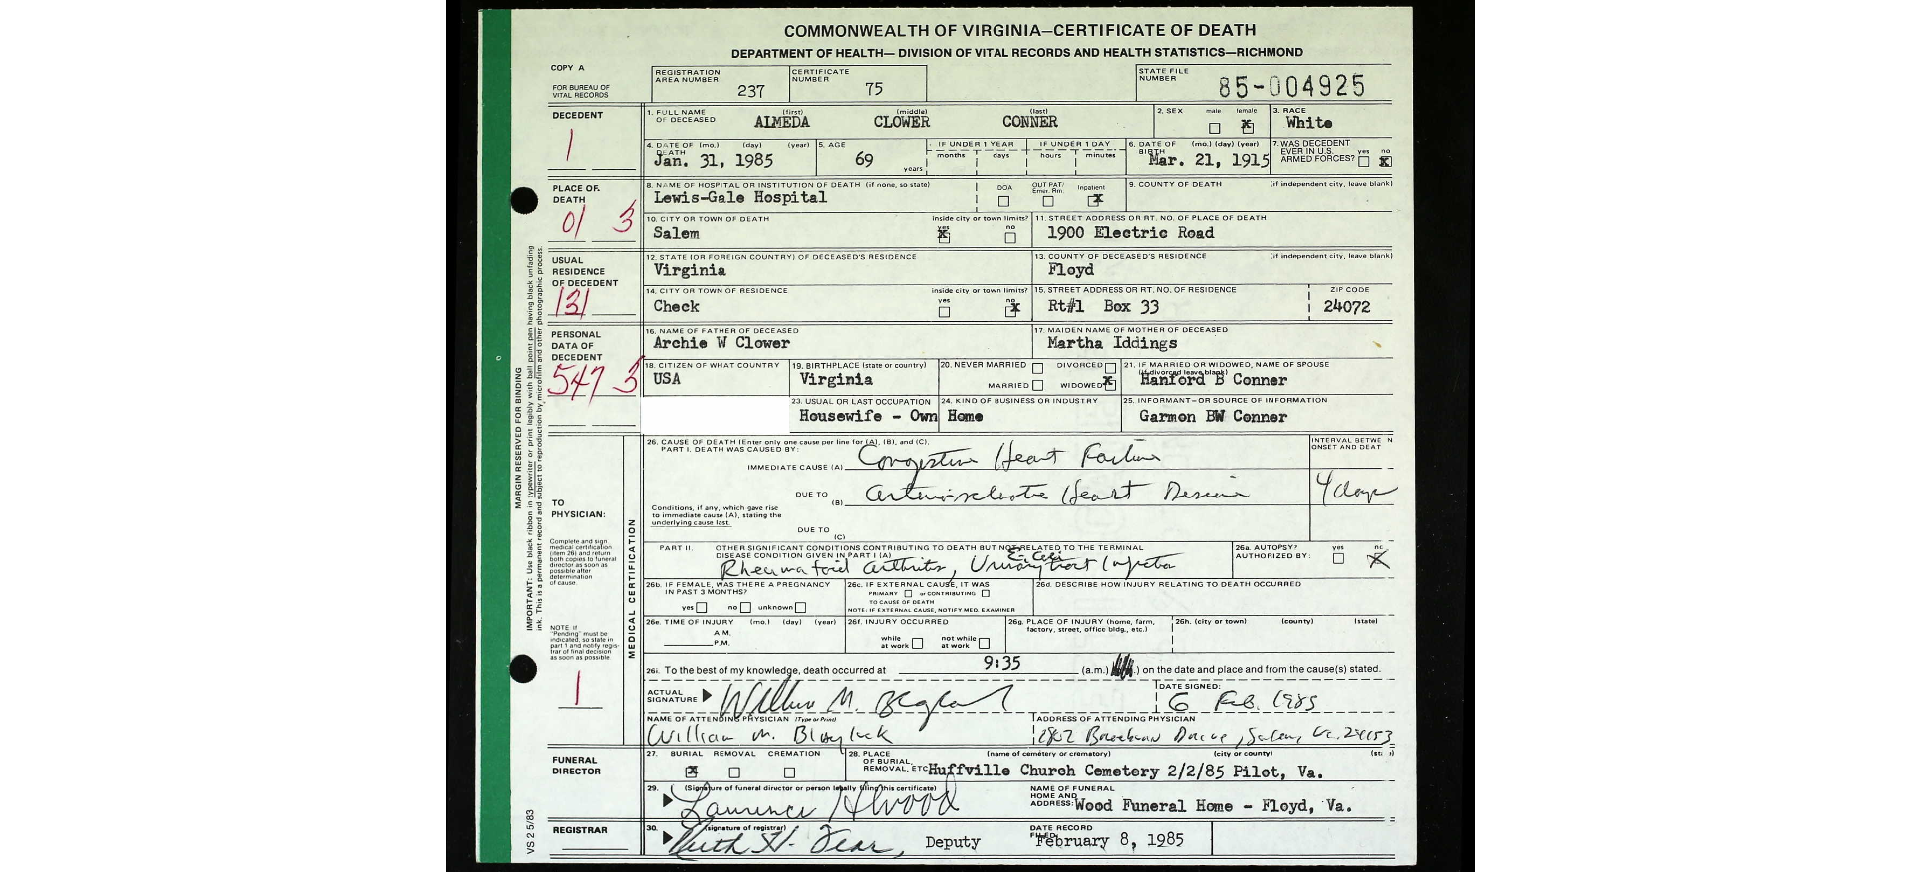 COMMONWEALTH OF VIRGINIA—CERTIFICATE OF DEATH
DEPARTMENT OF HEALTH— DIVISION OF VITAL RECORDS AND HEALTH STATISTICS—RICHMOND
COPY A
FOR BUREAU OF VITAL RECORDS
REGISTRATION AREA NUMBER 237
CERTIFICATE NUMBER 75
STATE FILE NUMBER 85-004925
DECEDENT
1
1. FULL NAME OF DECEASED (first) ALMEDA (middle) CLOWER (last) CONNER
2. SEX male female X
3. RACE White
4. DATE OF DEATH (mo.) (day) (year) Jan. 31, 1985
5. AGE 69 years
IF UNDER 1 YEAR months days
IF UNDER 1 DAY hours minutes
6. DATE OF BIRTH (mo.) (day) (year) Mar. 21, 1915
7. WAS DECEDENT EVER IN U.S. ARMED FORCES? yes no X
PLACE OF DEATH
01 3
8. NAME OF HOSPITAL OR INSTITUTION OF DEATH (if none, so state) Lewis-Gale Hospital
DOA OUT PAT/ Emer. Rm. Inpatient X
9. COUNTY OF DEATH (if independent city, leave blank)
10. CITY OR TOWN OF DEATH Salem
inside city or town limits? yes X no
11. STREET ADDRESS OR RT. NO. OF PLACE OF DEATH 1900 Electric Road
USUAL RESIDENCE OF DECEDENT
131
12. STATE (OR FOREIGN COUNTRY) OF DECEASED'S RESIDENCE Virginia
13. COUNTY OF DECEASED'S RESIDENCE (if independent city, leave blank) Floyd
14. CITY OR TOWN OF RESIDENCE Check
inside city or town limits? yes no X
15. STREET ADDRESS OR RT. NO. OF RESIDENCE Rt#1 Box 33
ZIP CODE 24072
PERSONAL DATA OF DECEDENT
547 3
16. NAME OF FATHER OF DECEASED Archie W Clower
17. MAIDEN NAME OF MOTHER OF DECEASED Martha Iddings
18. CITIZEN OF WHAT COUNTRY USA
19. BIRTHPLACE (state or country) Virginia
20. NEVER MARRIED DIVORCED MARRIED WIDOWED X
21. IF MARRIED OR WIDOWED, NAME OF SPOUSE (if divorced leave blank) Hanford B Conner
23. USUAL OR LAST OCCUPATION Housewife - Own
24. KIND OF BUSINESS OR INDUSTRY Home
25. INFORMANT—OR SOURCE OF INFORMATION Garmon BW Conner
MARGIN RESERVED FOR BINDING
IMPORTANT: Use black ribbon in typewriter or print legibly with ball point pen having black unfading ink. This is a permanent record and subject to reproduction by microfilm and other photographic process.
TO PHYSICIAN:
Complete and sign medical certification (item 26) and return both copies to funeral director as soon as possible after determination of cause.
NOTE: If "Pending" must be indicated, so state in part 1 and notify registrar of final decision as soon as possible
1
MEDICAL CERTIFICATION
26. CAUSE OF DEATH (Enter only one cause per line for (A), (B), and (C).
PART I. DEATH WAS CAUSED BY:
IMMEDIATE CAUSE (A) Congestive Heart Failure
DUE TO (B) Arteriosclerotic Heart Disease
INTERVAL BETWE N ONSET AND DEAT
4 days
Conditions, if any, which gave rise to immediate cause (A), stating the underlying cause last.
DUE TO (C)
PART II. OTHER SIGNIFICANT CONDITIONS CONTRIBUTING TO DEATH BUT NOT RELATED TO THE TERMINAL DISEASE CONDITION GIVEN IN PART I (A)
E. Coli
Rheumatoid arthritis, Urinary tract infection
26a. AUTOPSY? AUTHORIZED BY: yes no X
26b. IF FEMALE, WAS THERE A PREGNANCY IN PAST 3 MONTHS? yes no unknown
26c. IF EXTERNAL CAUSE, IT WAS PRIMARY or CONTRIBUTING TO CAUSE OF DEATH
NOTE: IF EXTERNAL CAUSE, NOTIFY MED. EXAMINER
26d. DESCRIBE HOW INJURY RELATING TO DEATH OCCURRED
26e. TIME OF INJURY (mo.) (day) (year) A.M. P.M.
26f. INJURY OCCURRED while at work not while at work
26g. PLACE OF INJURY (home, farm, factory, street, office bldg., etc.)
26h. (city or town) (county) (state)
26i. To the best of my knowledge, death occurred at 9:35 (a.m.) on the date and place and from the cause(s) stated.
ACTUAL SIGNATURE William M.
DATE SIGNED: 6 Feb. 1985
NAME OF ATTENDING PHYSICIAN (Type or Print) William M. Blaylock
ADDRESS OF ATTENDING PHYSICIAN Braeburn Drive, Salem, Va. 24153
FUNERAL DIRECTOR
27. BURIAL X REMOVAL CREMATION
28. PLACE OF BURIAL, REMOVAL, ETC. (name of cemetery or crematory) (city or county) Huffville Church Cemetery 2/2/85 Pilot, Va.
29. (Signature of funeral director or person legally filing this certificate) Laurence H Wood
NAME OF FUNERAL HOME AND ADDRESS: Wood Funeral Home - Floyd, Va.
REGISTRAR
30. (signature of registrar) Deputy
DATE RECORD FILED: February 8, 1985
VS 2 5/83